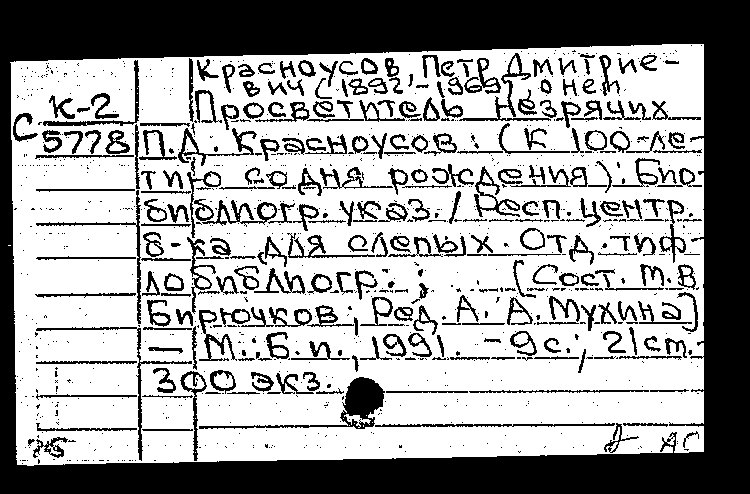 Красноусов, Петр Дмитрие-
вич (1892-1969), о нем
К-2 Просветитель незрячих
С 5778 П.Д. Красноусов: (К 100-ле-
тию со дня рождения): Био-
библиогр. указ. / Респ. центр.
б-ка для слепых. Отд. тиф-
лобиблиогр.; [Сост. М.В
Бирючков; Ред. А. А. Мухина]
— М.: Б. и., 1991. - 9 с.; 21 см. -
300 экз.
АС